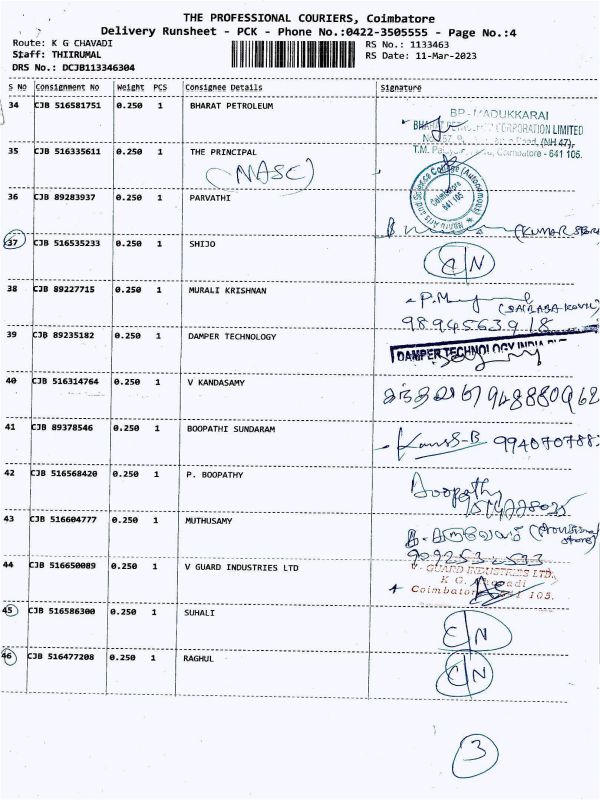 THE PROFESSIONAL COURIERS, Coimbatore
Delivery Runsheet - PCK - Phone No.:0422-3505555 - Page No.:4
Route: K G CHAVADI
Staff: THIIRUMAL
DRS No.: DCJB113346304
RS No.: 1133463
RS Date: 11-Mar-2023
S No Consignment No Weight PCS Consignee Details Signature
34 CJB 516581751 0.250 1 BHARAT PETROLEUM
BP - MADUKKARAI
BHARAT PETROLEUM CORPORATION LIMITED
Road, (NH 47),
T.M. Coimbatore - 641 105.
35 CJB 516335611 0.250 1 THE PRINCIPAL
(NASC)
Nehru Arts and Science College (Autonomous)
Coimbatore
641 105
36 CJB 89283937 0.250 1 PARVATHI
(KUMAR STORE
37 CJB 516535233 0.250 1 SHIJO
C/N
38 CJB 89227715 0.250 1 MURALI KRISHNAN
P.M
9894563918
39 CJB 89235182 0.250 1 DAMPER TECHNOLOGY
DAMPER TECHNOLOGY INDIA
40 CJB 516314764 0.250 1 V KANDASAMY
948880962
41 CJB 89378546 0.250 1 BOOPATHI SUNDARAM
994070788
42 CJB 516568420 0.250 1 P. BOOPATHY
Boopathy
43 CJB 516604777 0.250 1 MUTHUSAMY
(Provisional
store)
44 CJB 516650089 0.250 1 V GUARD INDUSTRIES LTD
V - GUARD INDUSTRIES LTD.,
K G. Chavadi
Coimbatore 641 105.
45 CJB 516586300 0.250 1 SUHALI
C/N
46 CJB 516477208 0.250 1 RAGHUL
C/N
3